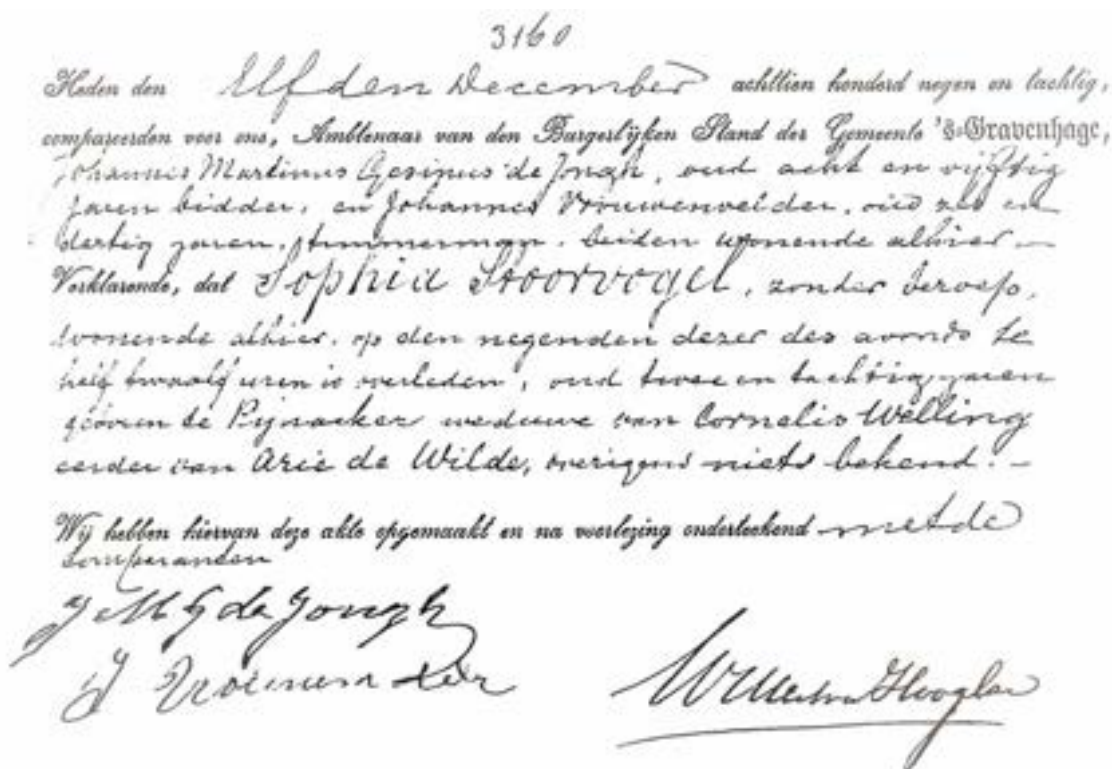 3160
Heden den Elfden December achttien honderd negen en tachtig,
compareerden voor ons, Ambtenaar van den Burgerlijken Stand der Gemeente 's-Gravenhage,
Johannes Martinus Gesinus de Jongh, oud acht en vijftig
jaren bidder, en Johannes Vrouwenvelder, oud zes en
dertig jaren, timmerman, beiden wonende alhier –
Verklarende, dat Sophia Stoorvogel, zonder beroep,
wonende alhier, op den negenden dezer des avonds te
half twaalf uren is overleden, oud twee en tachtig jaren
geboren te Pijnacker weduwe van Cornelis Welling
eerder van Arie de Wilde, overigens niets bekend. –
Wij hebben hiervan deze akte opgemaakt en na voorlezing onderteekend met de
comparanten
J M G de Jongh
J Vrouwenvelder